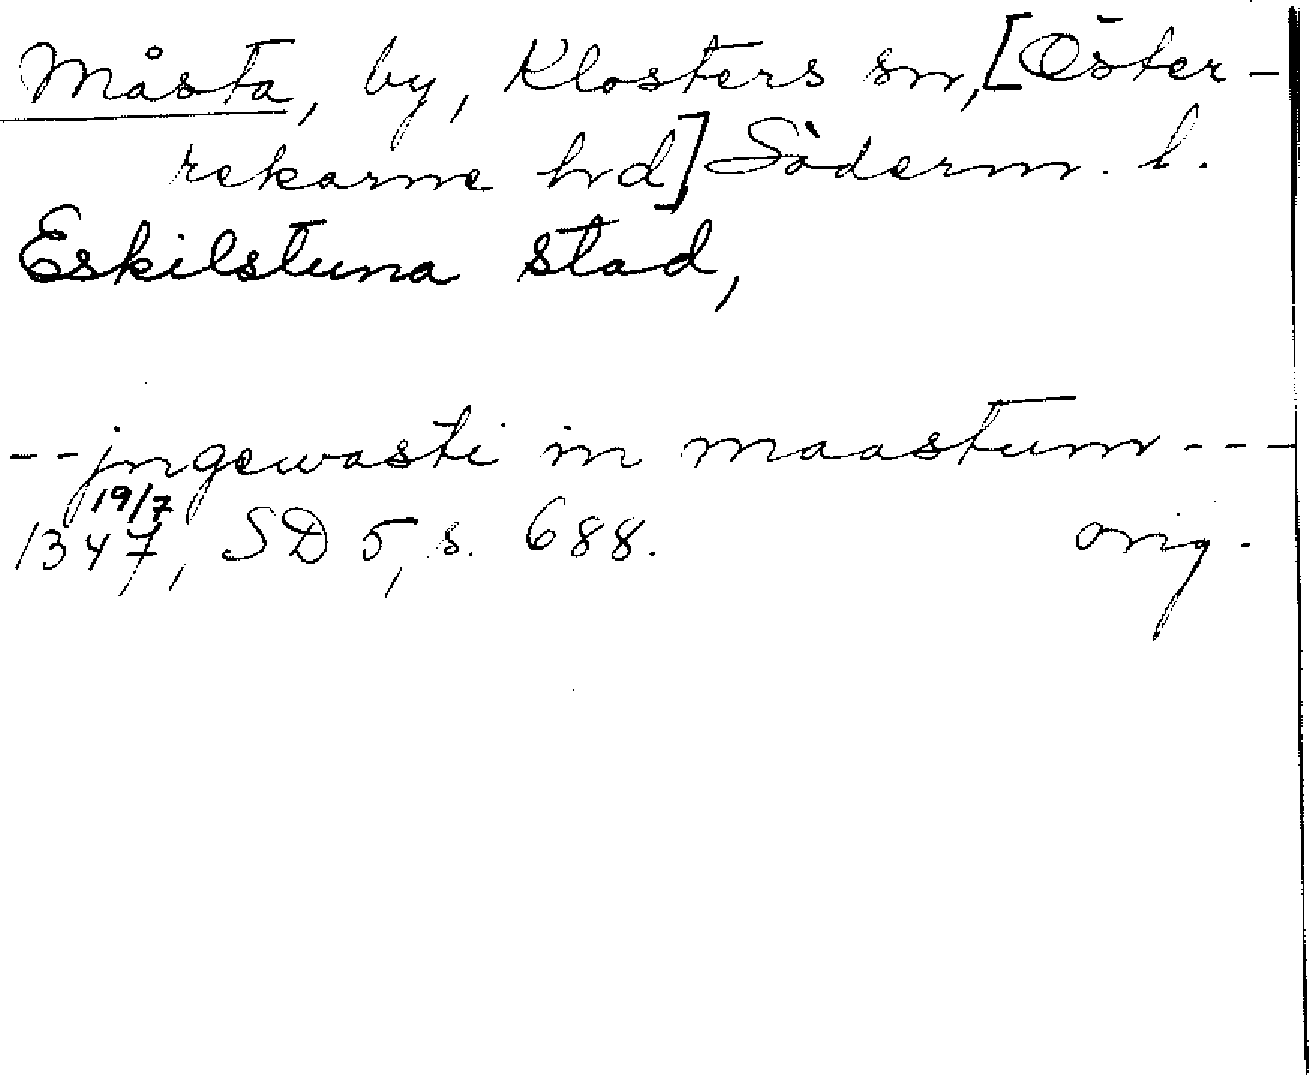 Måsta, by, Klosters sn, [Öster-
rekarne hrd] Söderm. l.
Eskilstuna stad,
--jngewasti in maastum---
19/7
1347, SD 5, s. 688. orig.